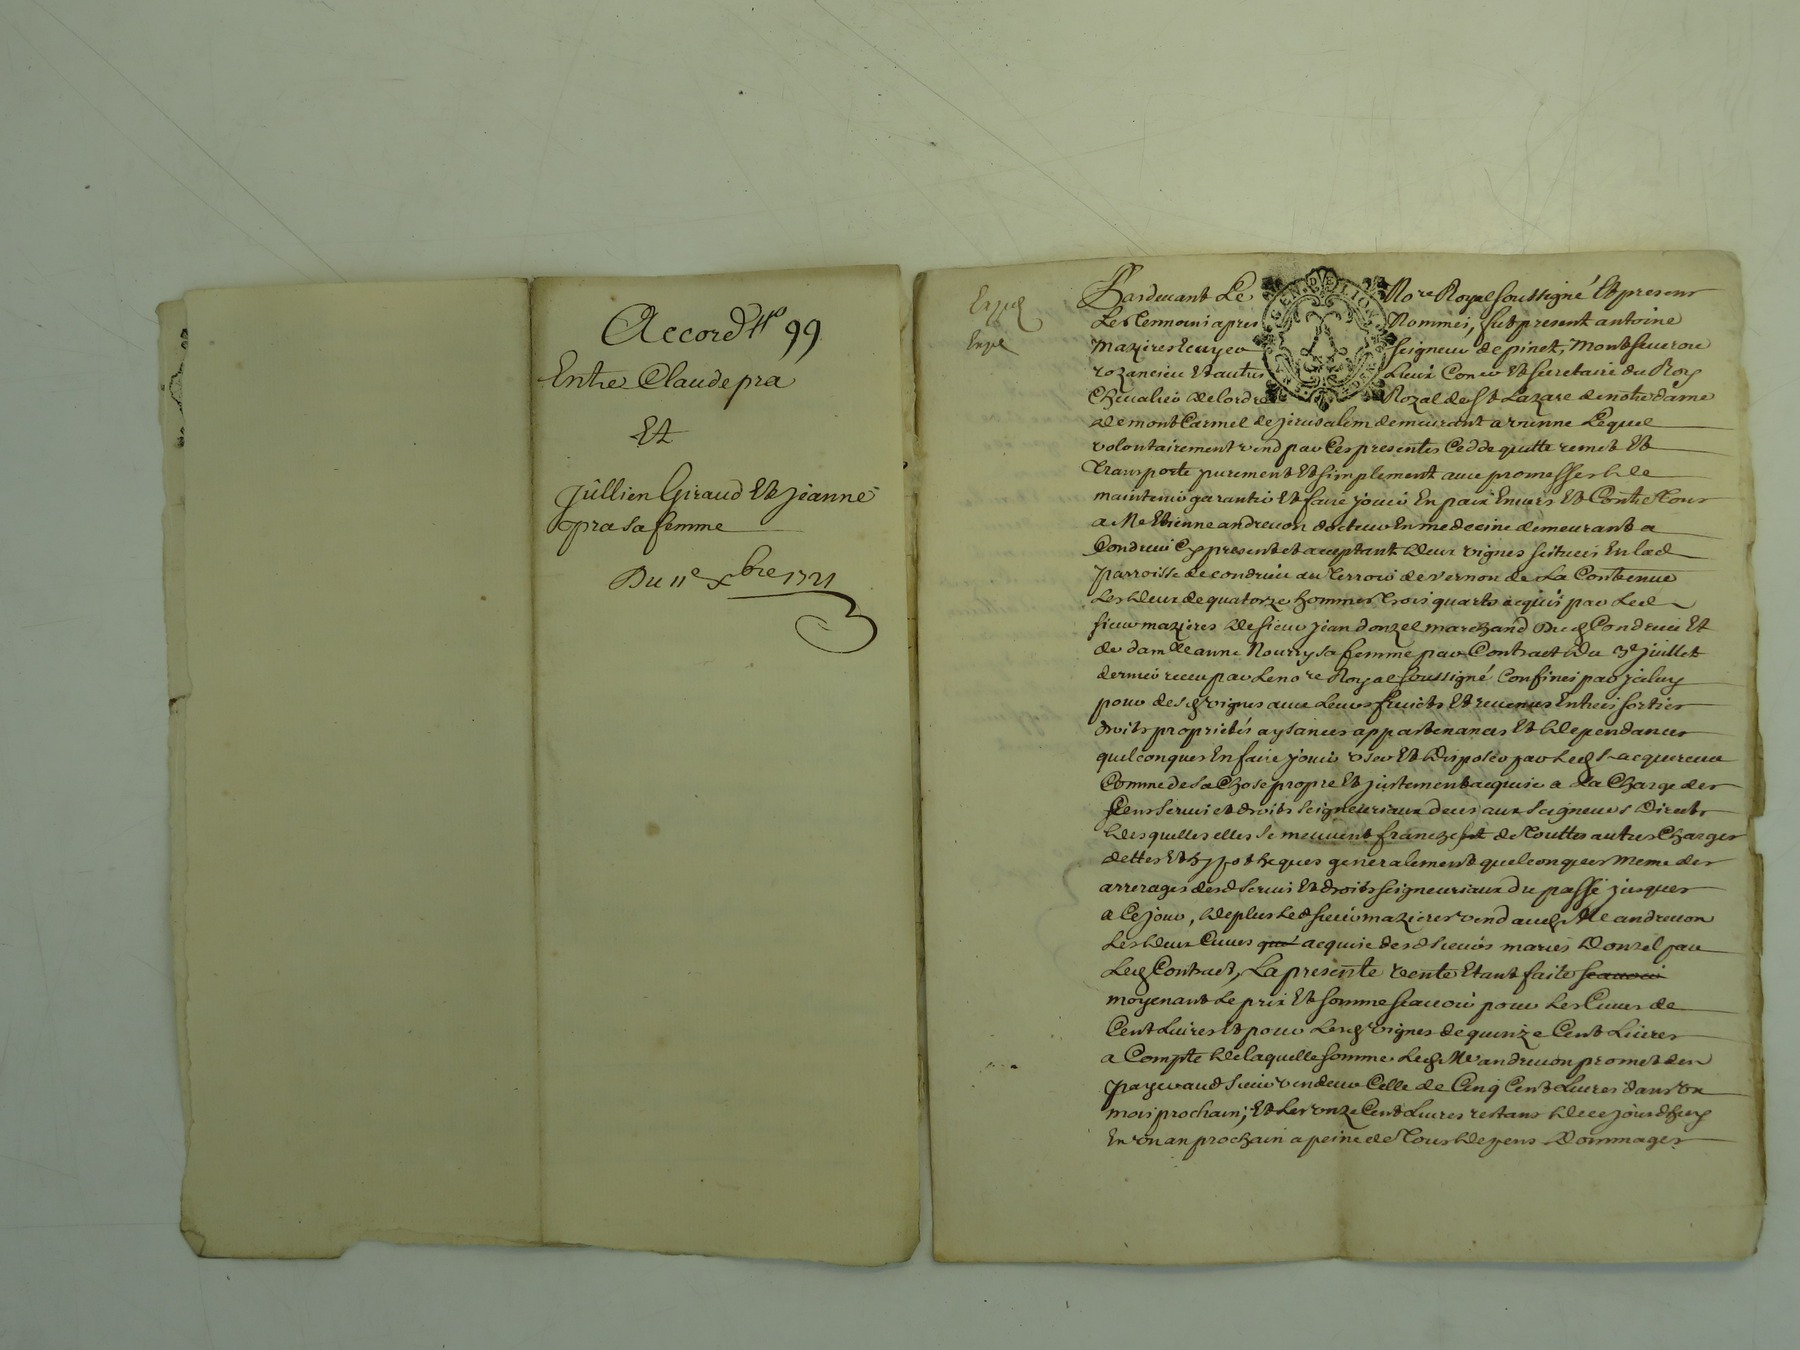 Accord N° 99
Entre Claude pra
Et
Jullien Giraud Et jeanne
pra sa femme
Du 11e xbre 1721
Expd
Expd
Pardeuant Le No.re Royal soussigné Et presens
Les temoins apres Nommés, fut present antoine
mazieres Ecuyer seigneur de pinet, montseueroux
rozancieu Et autres Lieux Coner Et Secretaire du Roy
Cheualier de lordre Royal de St Lazare de notre dame
de mont Carmel de jerusalem demeurant a vienne Lequel
volontairement vend par Ces presentes Cedde quitte remet Et
transporte purement Et simplement auec promesses de
maintenir garantir Et faire jouir En paix Enuers Et Contre tous
a Me Etienne andreuon docteur En medecine demeurant a
Condrieu Cy present et aceptant deux vignes scituees En lad
parroisse de condrieu au terroir de vernon de La Contenue
Les deux de quatorze hommes trois quarts acquis par led
sieur mazieres de sieur jean donzel marchand Dud Condrieu Et
de damlle anne Nourry sa femme par Contract du 3e juillet
dernier receu par Le no.re Royal soussigné Confinés par jceluy
pour desd vignes auec Leurs fruicts Et reuenus Entrées sorties
droits proprietés aysances appartenances Et dependances
quelconques En faire jouir vser Et disposer par led Sr acquereur
Comme de sa Chose propre Et justement acquise a La Charge des
Cens seruis et droits seigneuriaux deus aux seigneurs Directs
desquelles elles se meuuent franches et de touttes autres Charges
dettes Et hypotheques generalement quelconques meme des
arrerages desd seruis Et droits seigneuriaux du passé jusques
a Ce jour, de plus led sieur mazieres vend aud Me andreuon
Les deux Cuues qué acquise desd sieurs mariés donzel par
led Contract, La presente vente Etant faite scauoir
moyenant Le prix Et somme scauoir pour Les Cuues de
Cent Liures Et pour Lesd vignes de quinze Cent Liures
a Compte de laquelle somme led Me andreuon promet den
payer aud sieur vendeur Celle de Cinq Cent Liures dans vn
mois prochain; Et Les onze Cent Liures restans de ce jourdhuy
En vn an prochain a peine de tous depens Dommages